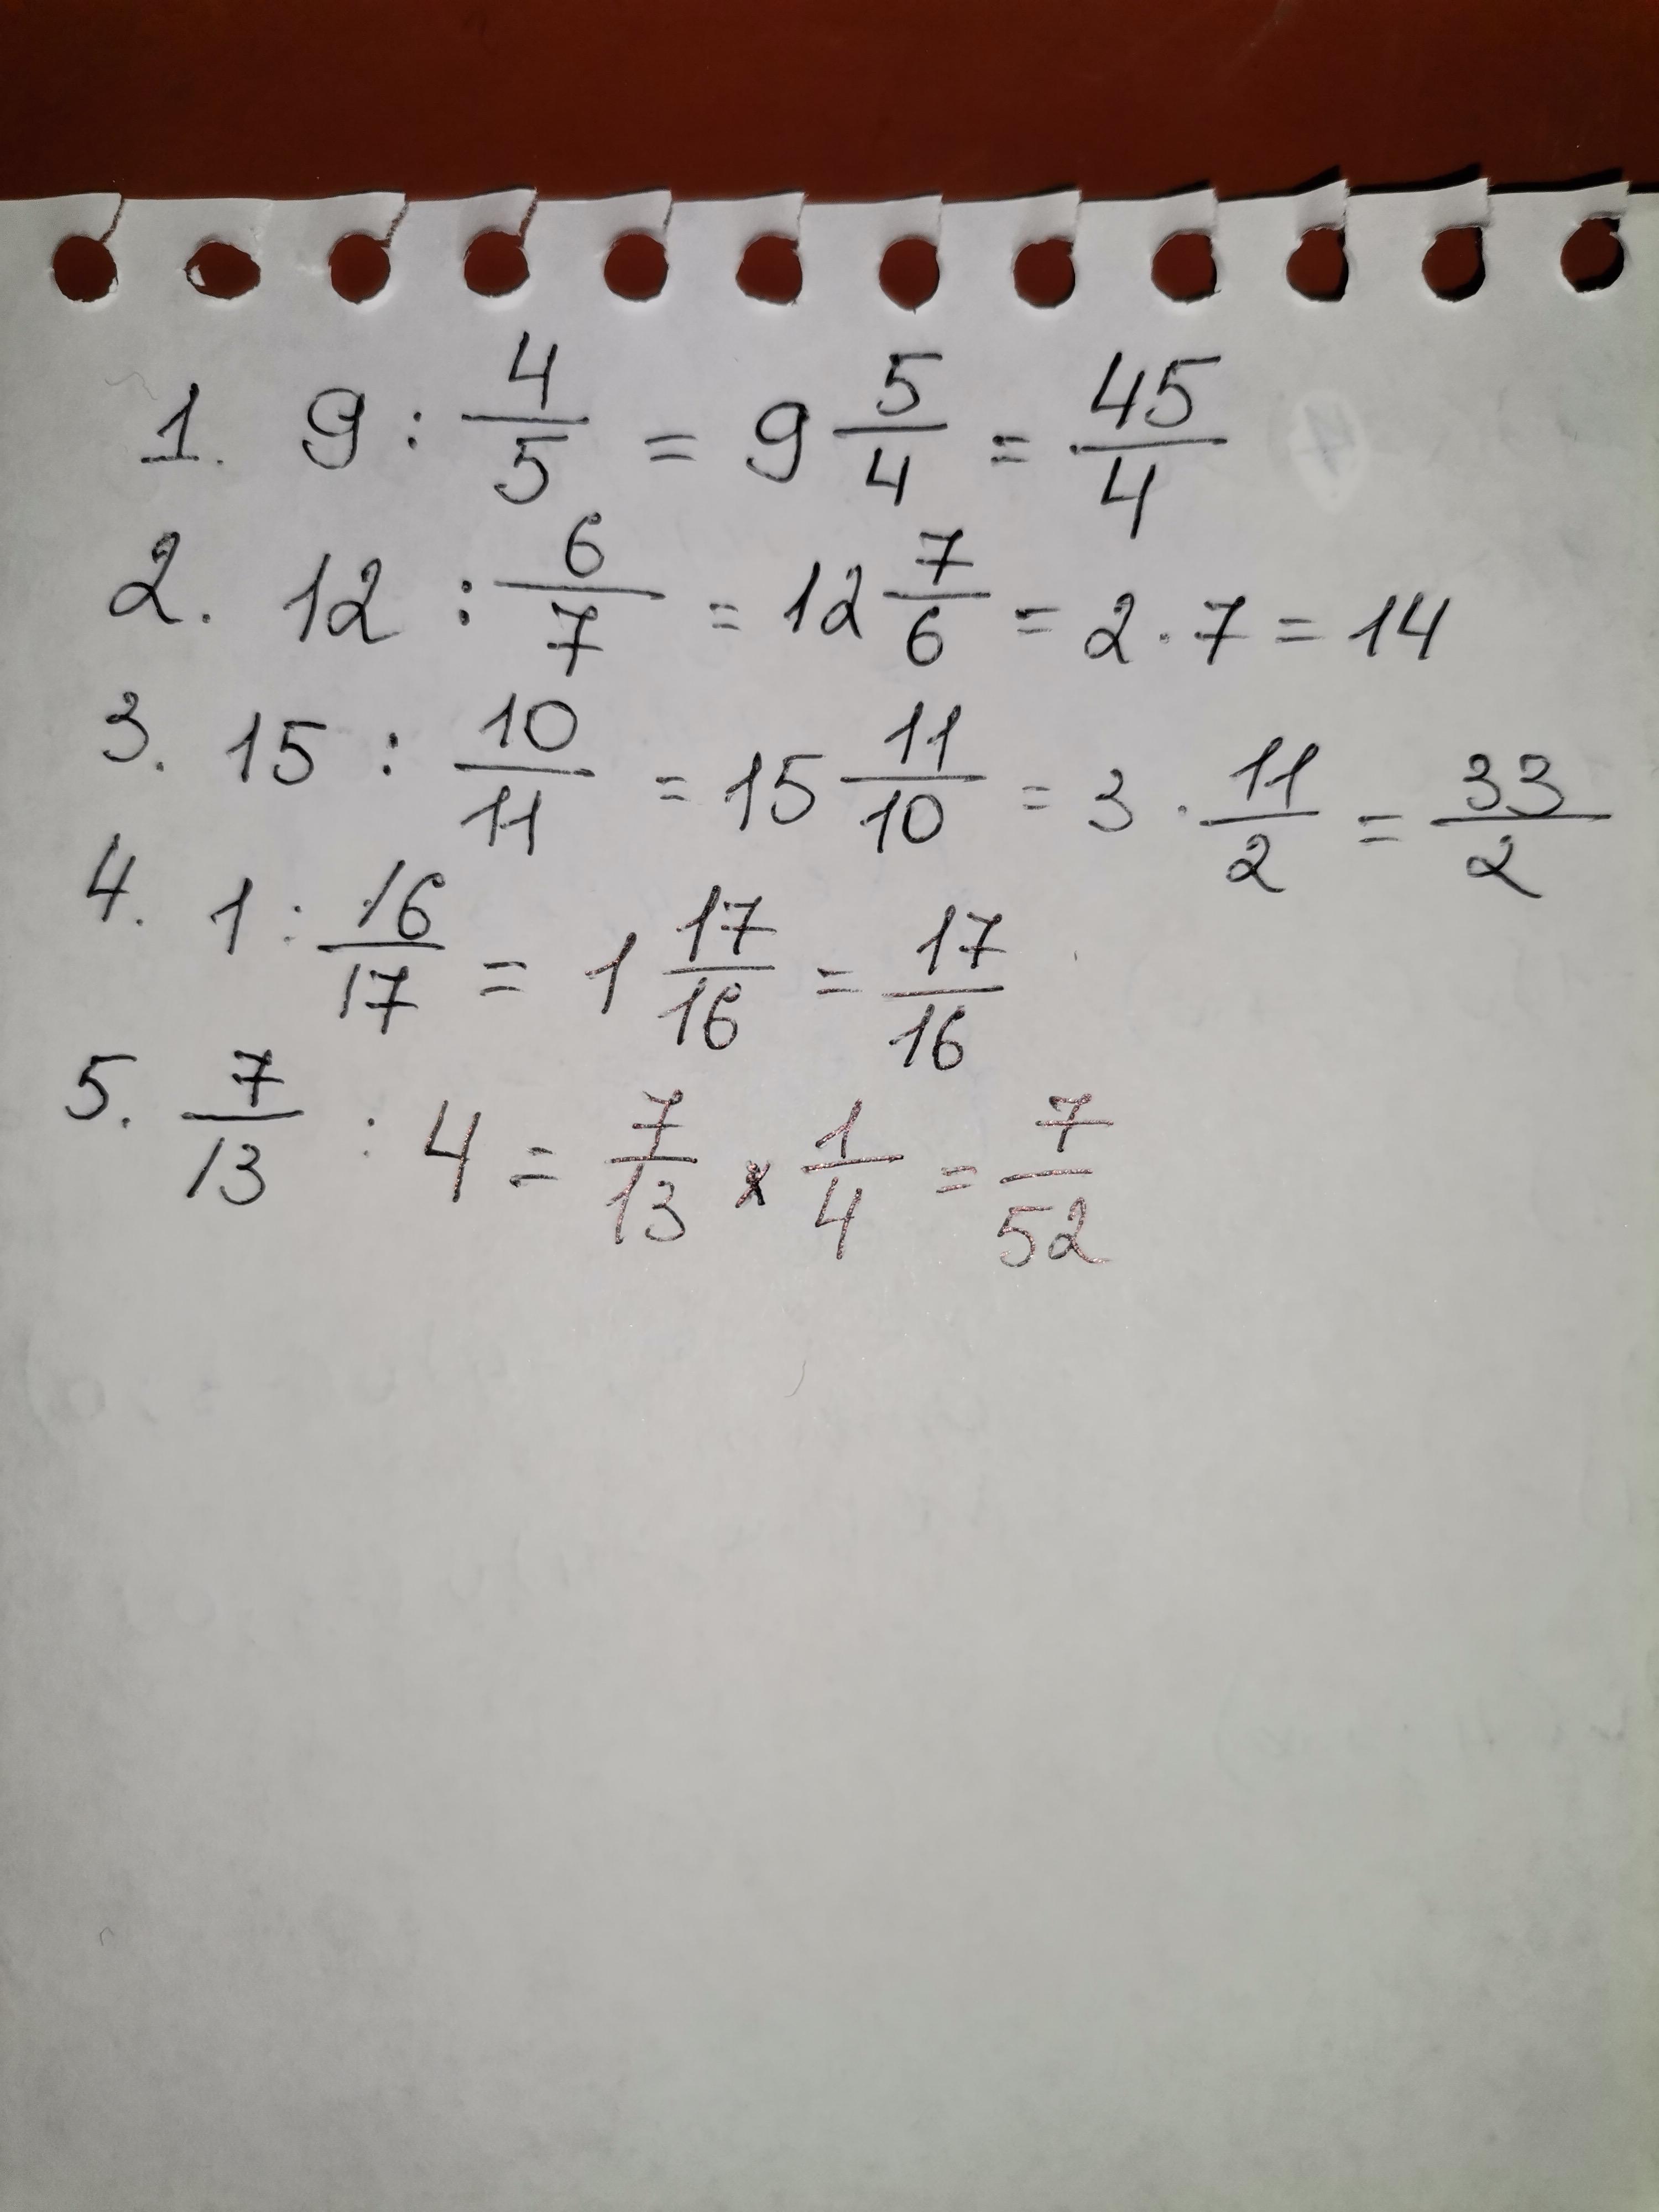 1. 9 : 4/5 = 9 5/4 = 45/4
2. 12 : 6/7 = 12 7/6 = 2 · 7 = 14
3. 15 : 10/11 = 15 11/10 = 3 · 11/2 = 33/2
4. 1 : 16/17 = 1 17/16 = 17/16
5. 7/13 : 4 = 7/13 × 1/4 = 7/52